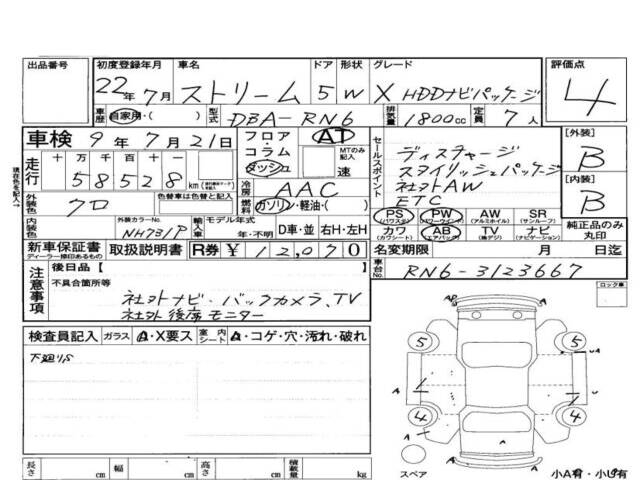 出品番号 初度登録年月 車名 ドア 形状 グレード 評価点
22年7月 ストリーム 5 W X HDDナビパッケージ 4
車歴 自家用・( ) 型式 DBA-RN6 排気量 1800cc 定員 7人
車検 9年7月21日 フロア・コラム・ダッシュ AT MTのみ記入 速
走行 十万 万 千 百 十 一
58528 km
セールスポイント
ディスチャージ
スタイリッシュパッケージ
社外AW
ETC
[外装] B
[内装] B
冷房 AAC
外装色 クロ 色替車は色替と記入 燃料 ガソリン・軽油・( )
PS (パワステ) PW (パワーウインド) AW (アルミホイル) SR (サンルーフ)
カワ (カワシート) AB (エアバック) TV (地デジ) ナビ (ナビゲーション)
純正品のみ丸印
内装色 外装カラーNo. NH731P 輸入車 モデル年式 年・不明 D車・並 右H・左H
新車保証書 ディーラー捺印あるもの 取扱説明書 R券 ¥12,070
名変期限 月 日迄
車台No. RN6-3123667
注意事項 後日品【 】
不具合箇所等
社外ナビ・バックカメラ、TV
社外後席モニター
ロック車
検査員記入 ガラス A・X要ス 室内シート A・コゲ・穴・汚れ・破れ
下廻りS
AP A
5 5 UA
A A
4 4
A A
スペア 小A有・小U有
長さ cm 幅 cm 高さ cm 積載量 kg
現在色を記入→